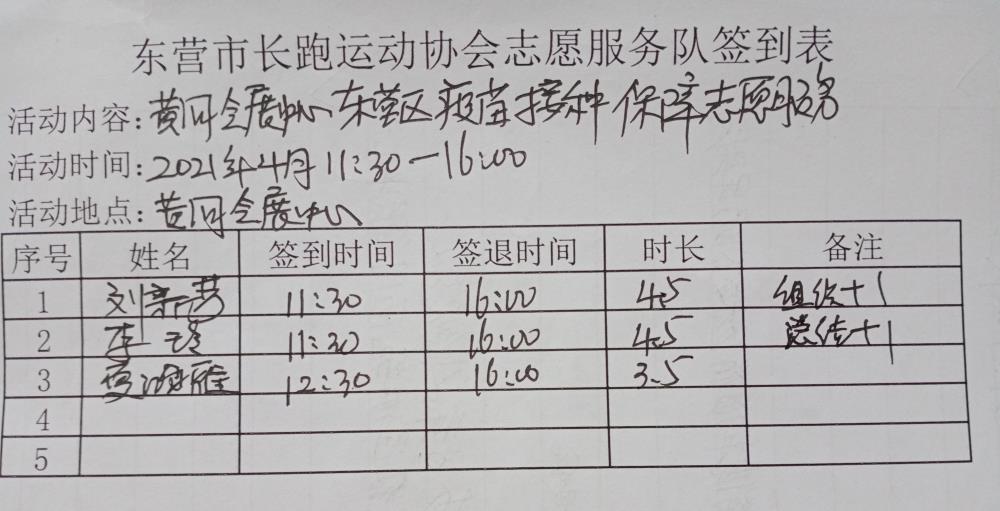 东营市长跑运动协会志愿服务队签到表
活动内容: 黄河会展中心东营区疫苗接种保障志愿服务
活动时间: 2021年4月11:30—16:00
活动地点: 黄河会展中心
序号 姓名 签到时间 签退时间 时长 备注
1 刘 11:30 16:00 4.5 组织+1
2 李 11:30 16:00 4.5 总结+1
3 12:30 16:00 3.5
4
5